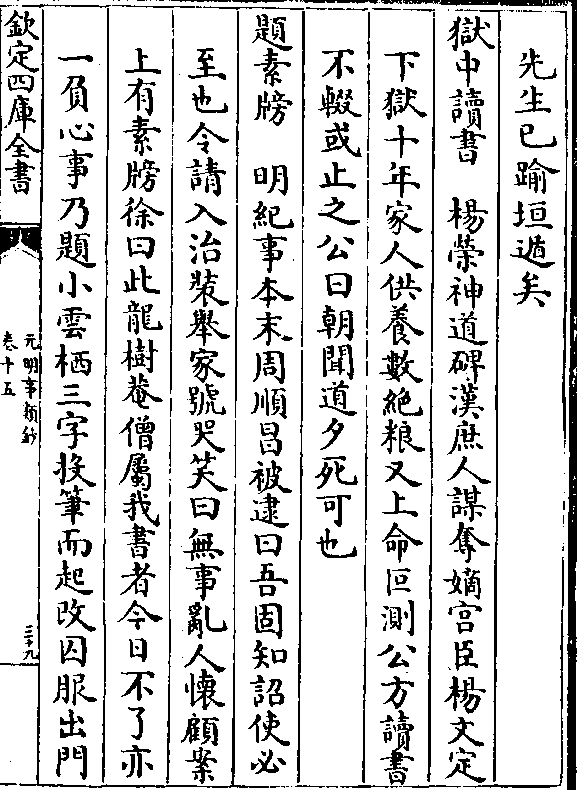 先生已踰垣遁矣
獄中讀書　楊榮神道碑漢庶人謀奪嫡宫臣楊文定
下獄十年家人供養數絶粮又上命叵測公方讀書
不輟或止之公曰朝聞道夕死可也
題素牓　明紀事本末周順昌被逮曰吾固知詔使必
至也令請入治裝舉家號哭笑曰無事亂人懷顧案
上有素牓徐曰此龍樹菴僧屬我書者今日不了亦
一負心事乃題小雲栖三字投筆而起改囚服出門
欽定四庫全書
元明事類鈔
卷十五
三十九